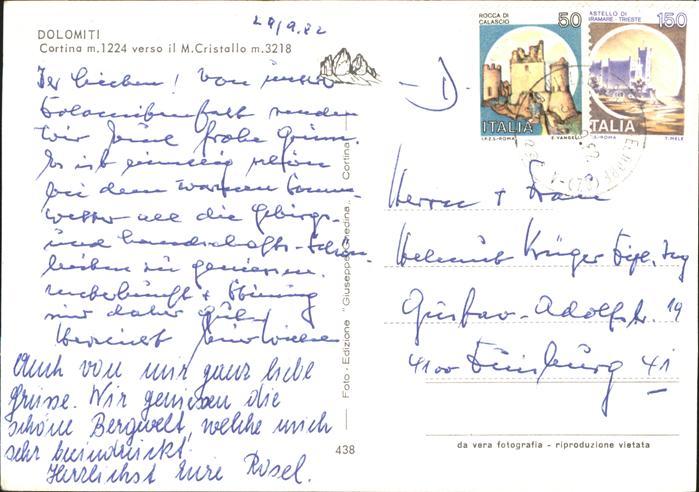 28/9.82
DOLOMITI
Cortina m.1224 verso il M.Cristallo m.3218
Ihr Lieben! Von unser
Dolomitenfahrt senden
wir Euch frohe Grüße.
Es ist einmalig schön
bei dem warmen Sonnen-
wetter all die Gebirgs-
und Landschafts-Schön-
heiten zu geniessen.
Unterkunft + Stimmung
sind daher
Herzlichst
Auch von mir ganz liebe
Grüsse. Wir geniessen die
schöne Bergwelt, welche mich
sehr beeindruckt.
Herzlichst Eure Rosel.
Foto - Edizione "Giuseppe Ghedina" Cortina
438
D
ROCCA DI
CALASCIO
50
ITALIA
I.P.Z.S.-ROMA E. VANGELLI
CASTELLO DI
MIRAMARE - TRIESTE
150
ITALIA
ROMA T. MELE
Herrn + Frau
Helmut Krüger Dipl. Ing
Gustav-Adolfstr. 19
4100 Duisburg 41
da vera fotografia - riproduzione vietata